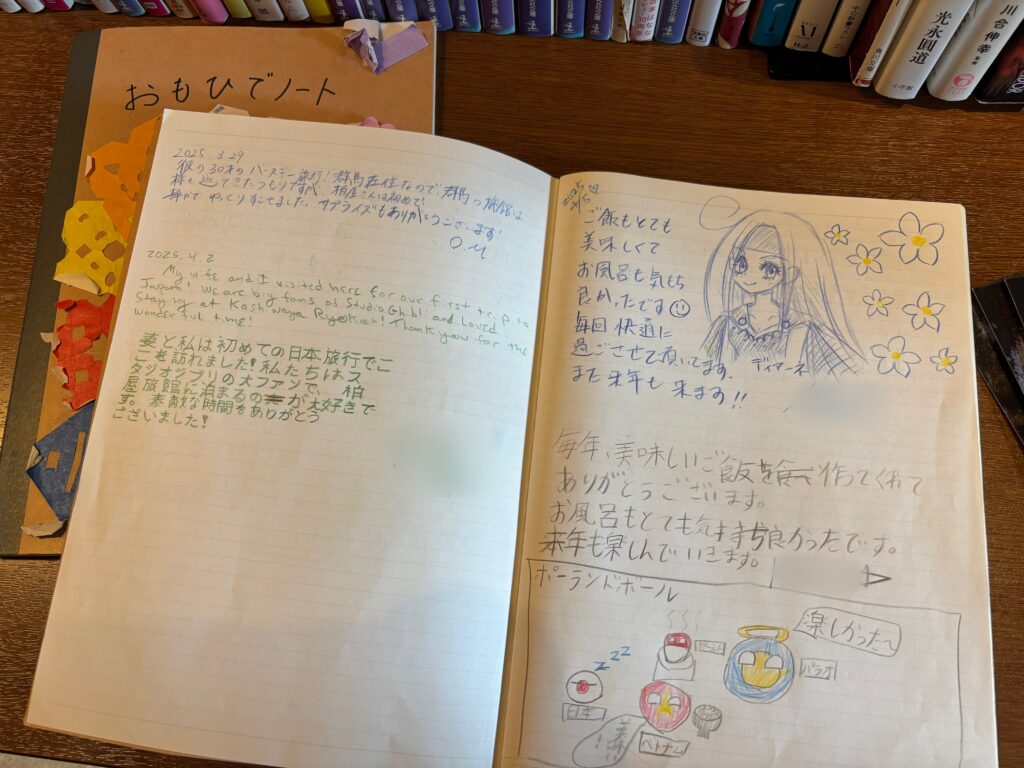 おもひでノート
光永圓道
小学館
川合伸幸
2025.3.29
彼の30才のバースデー旅行！群馬在住なので群馬の旅館は
様々巡てきたつもりですが 柏屋さんは初めて！
ゆっくりすごせました サプライズもありがとうございます！
2025.4.2
My wife and I visited here for our first trip to
Japan! We are big fans of Studio Ghibli and loved
staying at Kashiwaya Ryokan! Thank you for the
wonderful time!
妻と私は初めての日本旅行でこ
こを訪れました！私たちはス
タジオジブリの大ファンで、柏
屋旅館に泊まるのが大好きで
す。素敵な時間をありがとう
ございました！
2025
4/5
ご飯もとても
美味しくて
お風呂も気もち
良かったです
毎回快適に
過ごさせて頂いてます。
また来年も来ます!!
ディアーネ
毎年、美味しいご飯を作ってくれて
ありがとうございます。
お風呂もとても気持ち良かったです。
来年も楽しんでいきます。
ポーランドボール
楽しかった〜
パラオ
zzz
日本
ベトナム